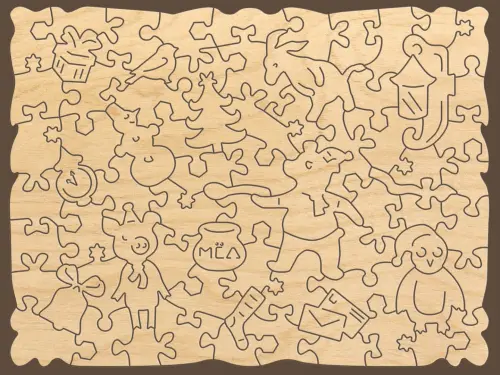 МЁД